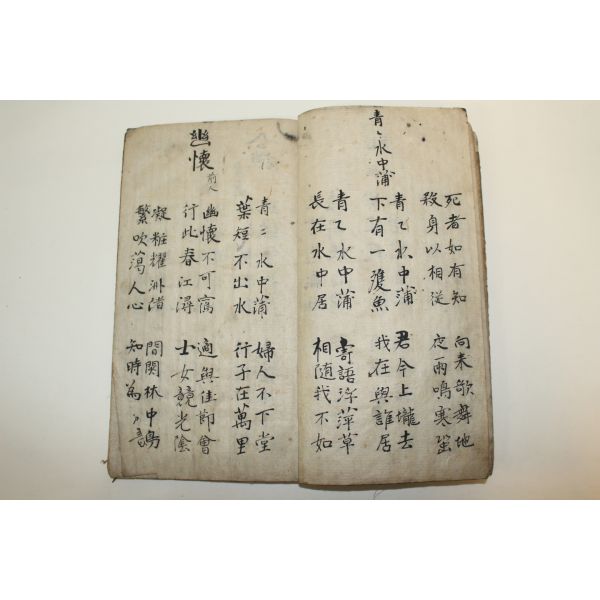 死者如有知 向来歌舞地
殺身以相從 夜雨鳴寒蛩
青〻水中蒲
青〻水中蒲 君今上壠去
下有一雙魚 我在與誰居
青〻水中蒲 寄語浮萍草
長在水中居 相隨我不如
青〻水中蒲 婦人不下堂
葉短不出水 行子在萬里
幽懷 前人
幽懷不可寫 適與佳節會
行此春江潯 士女競光陰
凝粧耀洲渚 間関林中鳥
繁吹蕩人心 知時為〻音